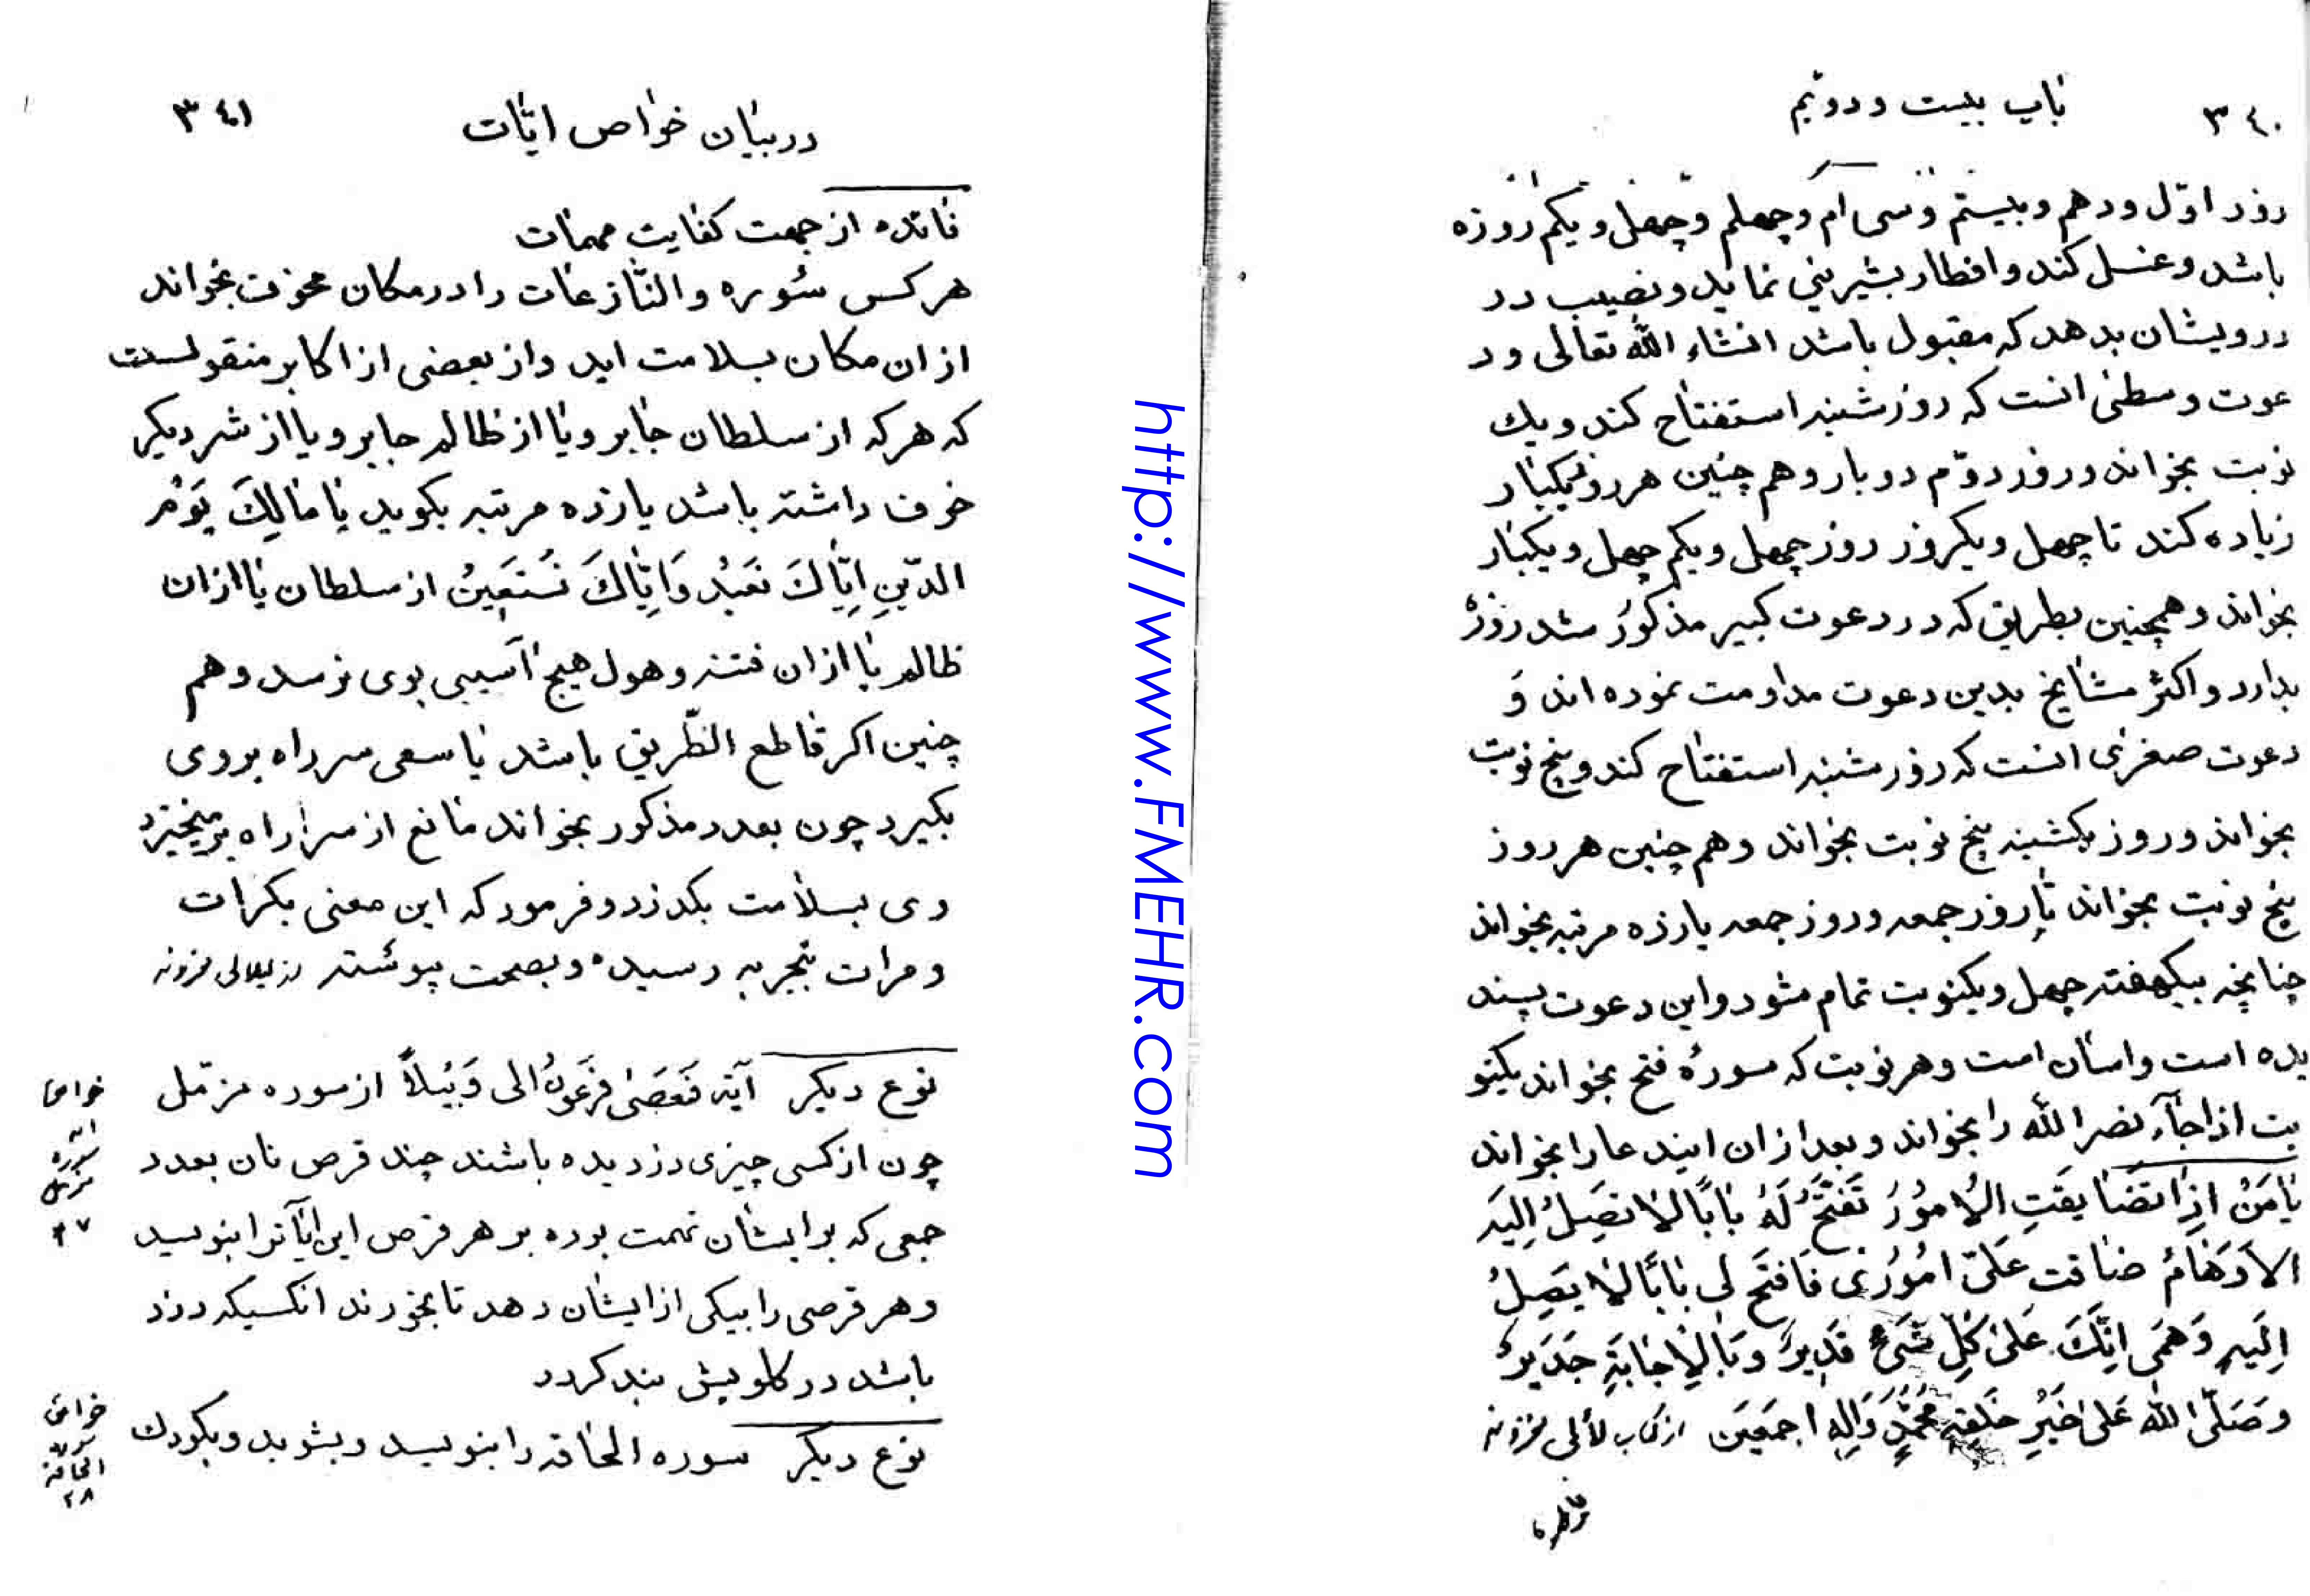 ٣٤٠
باب بیست و دویّم
روز اوّل و دهم و بیستم و سی ام و چهلم و چهل و یکم روزه
باشد و غسل کند و افطار بشیرینی نماید و نصیب در
درویشان بدهد که مقبول باشد انشاء الله تعالی و د
عوت وسطی انست که روز شنبه استفتاح کند و یك
نوبت بخواند و روز دوّم دو بار و هم چنین هر روز یکبار
زیاده کند تا چهل و یکروز روز چهل و یکم چهل و یکبار
بخواند و همچنین بطریق که در دعوت کبیر مذکور شد روزۀ
بدارد و اکثر مشایخ بدین دعوت مداومت نموده اند وَ
دعوت صغری انست که روز شنبه استفتاح کند و پنج نوبت
بخواند و روز یکشنبه پنج نوبت بخواند و هم چنین هر روز
پنج نوبت بخواند تا روز جمعه و روز جمعه یازده مرتبه بخواند
چنانچه بیکهفته چهل و یکنوبت تمام شود و این دعوت پسند
یده است و اسان است و هر نوبت که سورۀ فتح بخواند یکنو
بت اذا جآء نصر الله را بخواند و بعد از ان ایندعا را بخواند
یا مَنْ اِذا تَضٰایَقَتِ الْاُمُورُ تَفْتَحُ لَهٗ بٰابًا لٰا تَصِلُ اِلَیهِ
الاَوهٰامُ ضٰاقت عَلَیّ اُمُورُی فَافتَح لی بٰابًا لٰا یَصِلُ
اِلَیهِ وَهمَی اِنَّكَ عَلیٰ کُلِّ شَیءٍ قَدِیرٌ وَ بِالْاِجٰابَةِ جَدیرٌ
وَ صَلَّی اللّٰه عَلیٰ خَیْرِ خَلقِهِ مُحَمَّدٍ وَ اٰلِهِ اَجمَعینَ از کتاب لألی مخزونه
٣٤١
در بیان خواص ایّات
فائده از جهت کفایت مهمات
هر کس سوره والنّازعات را در مکان مخوف بخواند
از ان مکان بسلامت اید و از بعضی از اکابر منقولست
که هر که از سلطان جابر و یا از ظالم جابر و یا از شر دیکر
خوف داشته باشد یازده مرتبه بکوید یٰا مٰالِكَ یَوْمِ
الدّینِ اِیّٰاكَ نَعبُدُ وَ اِیّٰاكَ نَسْتَعِینُ از سلطان یا از ان
ظالم یا از ان فتنه و هول هیچ آسیبی بوی نرسد و هم
چنین اکر قاطع الطّریق باشد یا سعی سر راه بر وی
بکیرد چون بعدد مذکور بخواند مانع از سر راه برمیخیزد
وی بسلامت بکذرد و فرمود که این معنی بکرات
و مرات بتجربه رسیده و بصحت پیوسته از لئالی مخزونه
نوع دیکر آیه فَعَصَیٰ فِرعَونُ الی وَبٖیلاً از سوره مزمّل
چون از کسی چیزی دزدیده باشند چند قرص نان بعدد
جمعی که بر ایشان تهمت بوده بر هر قرص این ایٓاترا بنویسید
و هر قرصی را بیکی از ایشان دهد تا بخورند انکسیکه دزد
باشد در کلویش بند کردد
نوع دیکر سوره الحاقه را بنویسید و بشوید و بکودك
خواص
سوره
مزمل
خواص
سوره
الحاقه
http://www.FMEHR.com